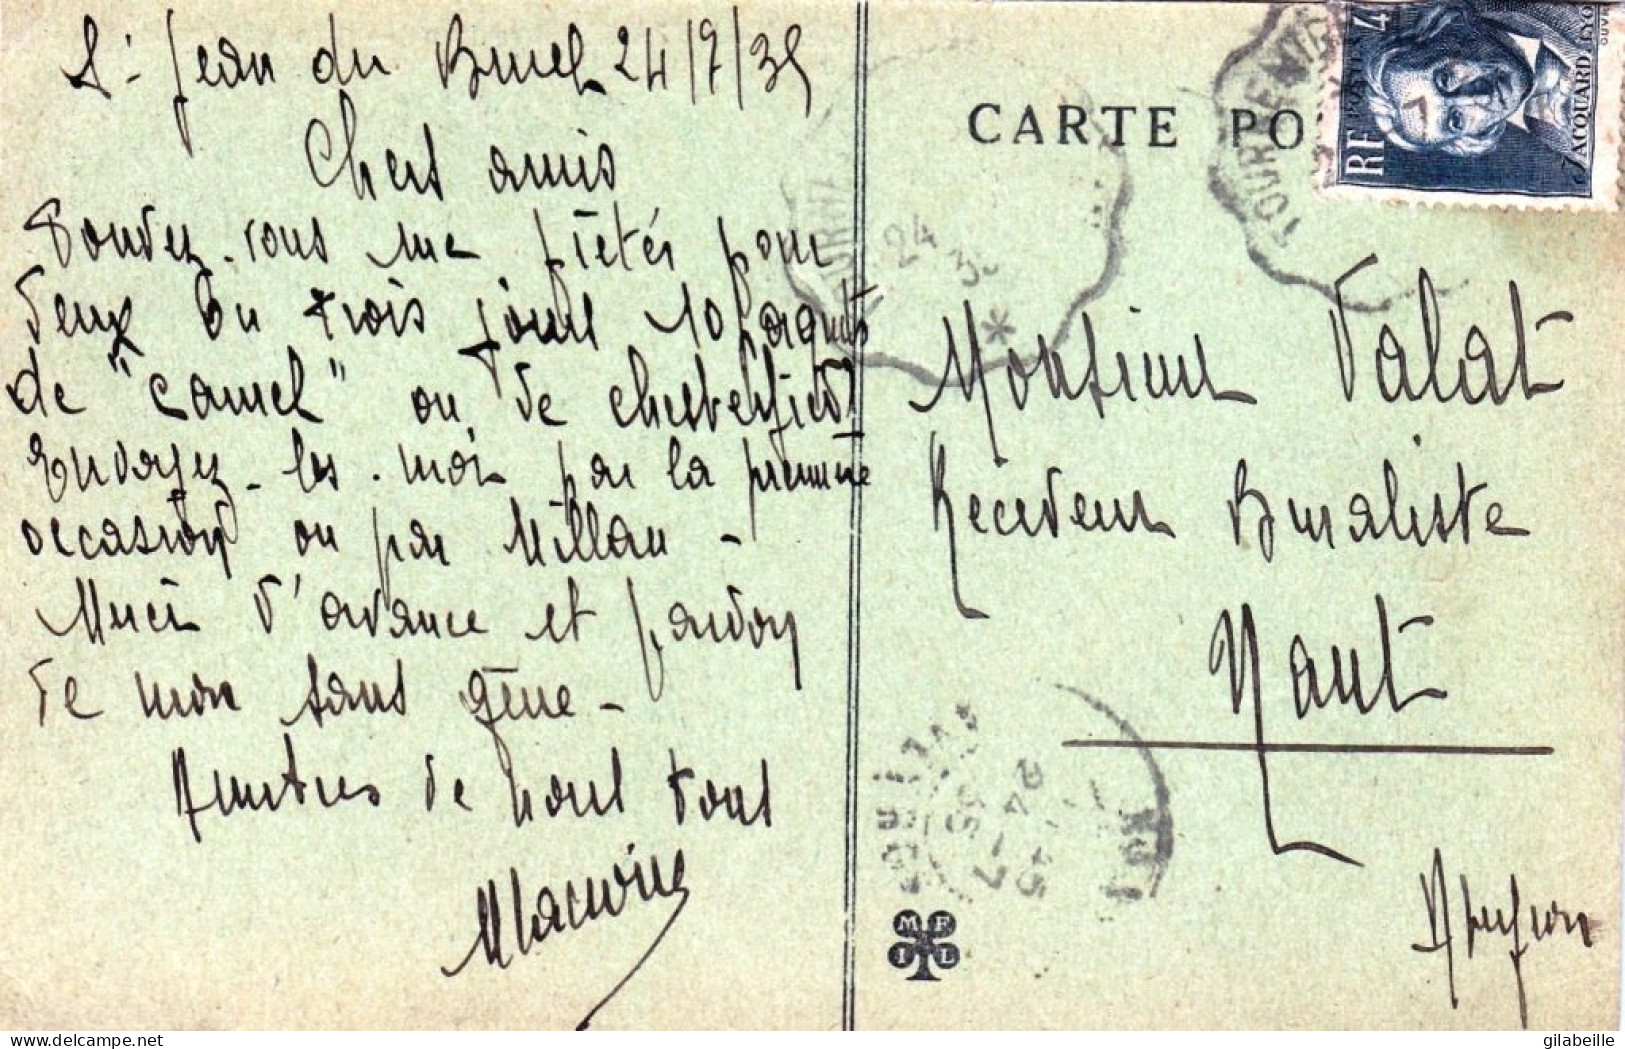 St Jean du Bruel 24/7/35
Chers amis
Pouvez-vous me prêter pour
deux ou trois jours 10 paquets
de "Camel" ou de Chesterfield
Envoyez-les-moi par la première
occasion ou par Millau -
Merci d'avance et pardon
de mon sans gêne -
Amitiés de nous tous
CARTE PO
Monsieur Valat
Receveur Buraliste
Nant
Aveyron
RF POSTES 4
JACQUARD LYON
TOURNEMIRE
24
24 -7
35
MFIL
delcampe.net
gilabeille